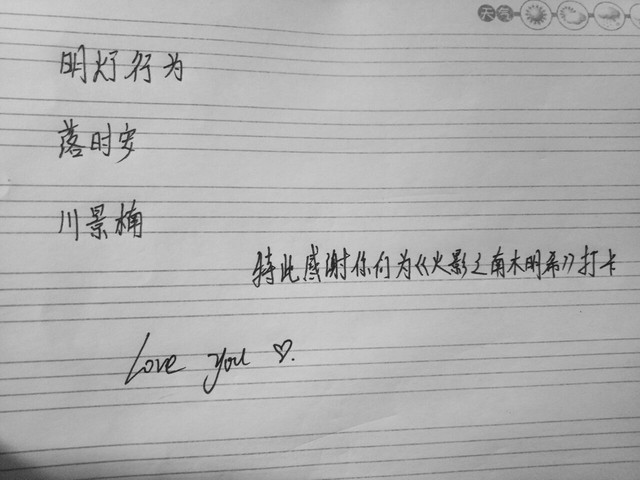 天气
明灯行为
落时安
川景楠
特此感谢你们为《火影之南木明希》打卡
Love you ♡.